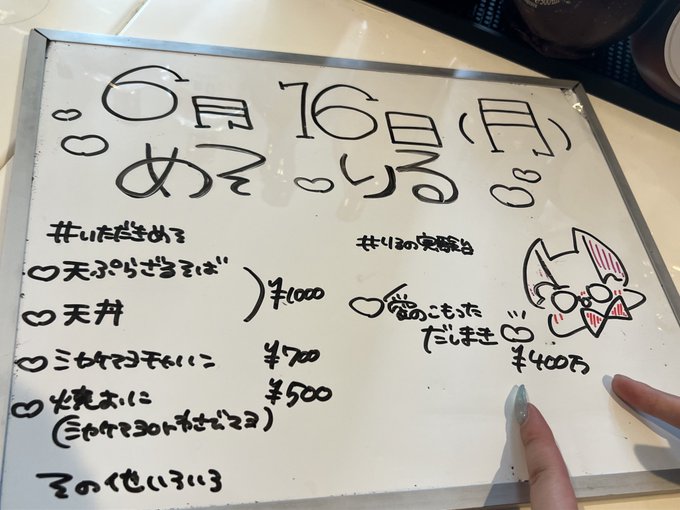 6月16日(月)
めそ りる
#いただきめそ
天ぷらざるそば
天丼
¥1000
ミヤケマヨチャハン
¥700
焼おに
¥500
(ミヤケマヨorわさびマヨ)
その他いろいろ
#りるの実験台
愛のこもった
だしまき
¥400万